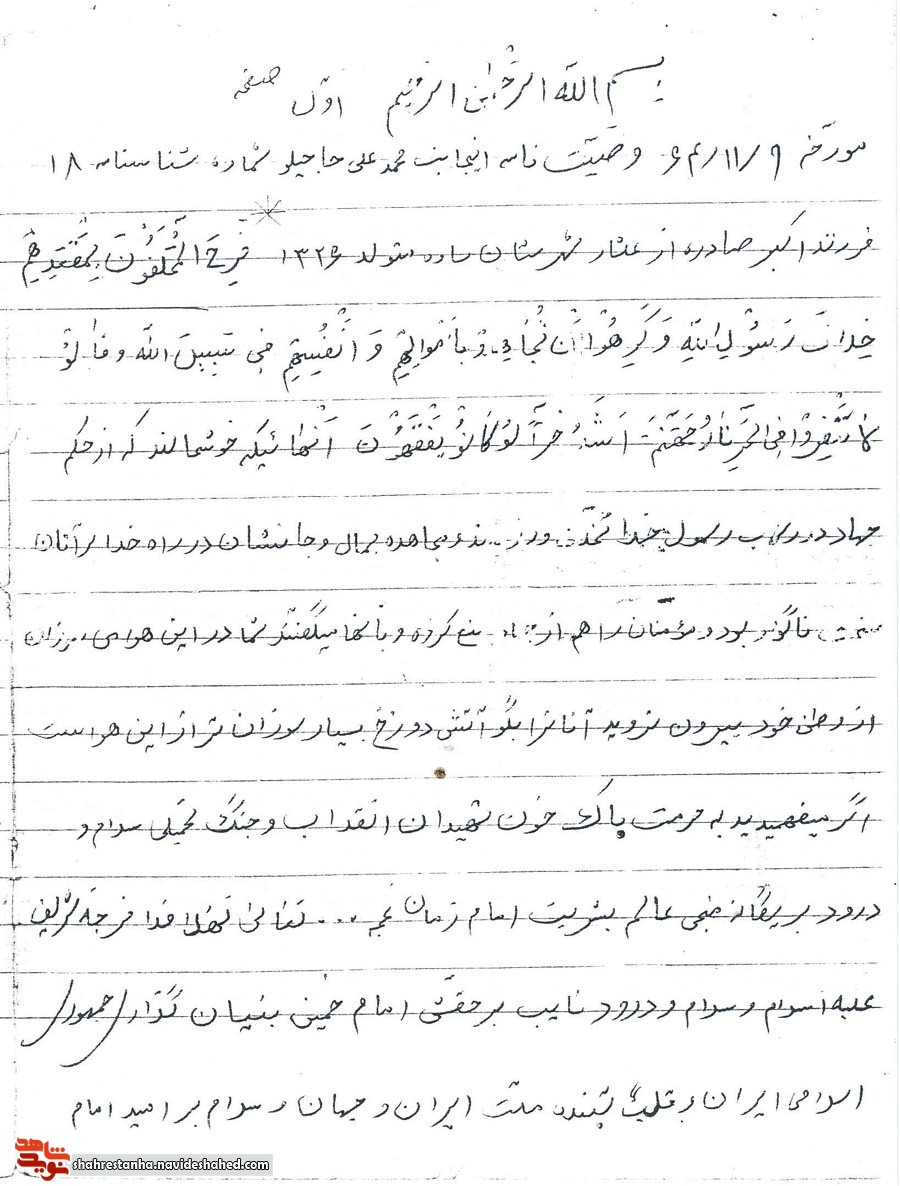 بسم الله الرحمن الرحیم اول صفحه
مورخه ۹/۱۱/۶۴ وصیّت نامه اینجانب محمد علی حاجیلو شماره شناسنامه ۱۸
فرزند اکبر صادره از عشار شهرستان ساوه متولد ۱۳۲۶ فَرِحَ المُخَلَّفُونَ بِمَقْعَدِهِمْ
خِلافَ رَسُولِ اللهِ وَ كَرِهُوا أَن يُجَاهِدُوا بِأَمْوَالِهِمْ وَ أَنْفُسِهِمْ فِي سَبِيلِ الله وَ قَالُوْ
لَا تَنْفِرُوا فِي الْحَرِّ نَارُ جَهَنَّمَ اَشَدُّ حَرّاً لَوْ كَانُو يَفْقَهُونَ آنهائیکه خوشحالند که از حکم
جهاد در رکاب رسول خدا تخلّف ورزیدند و مجاهده بمال و جانشان در راه خدا بر آنان
ناگوار بود و مؤمنان را هم از منع کرده و بآنها میگفتند شما در این هوای سوزان
از وطن خود بیرون نروید آنانرا بگو آتش دوزخ بسیار سوزان تر از این هواست
اگر میفهمیدید به حرمت پاک خون شهیدان انقلاب و جنگ تحمیلی سلام و
درود بر یگانه منجی عالم بشریت امام زمان عج ... تعالی فرجه شریف
علیه اسلام و سلام و درود نایب بر حقش امام خمینی بنیان گذار (جمهور)
اسلامی ایران و قلب تپنده ملت ایران و جهان و سلام بر امید امام
نوید شاهد
shahrestanha.navideshahed.com